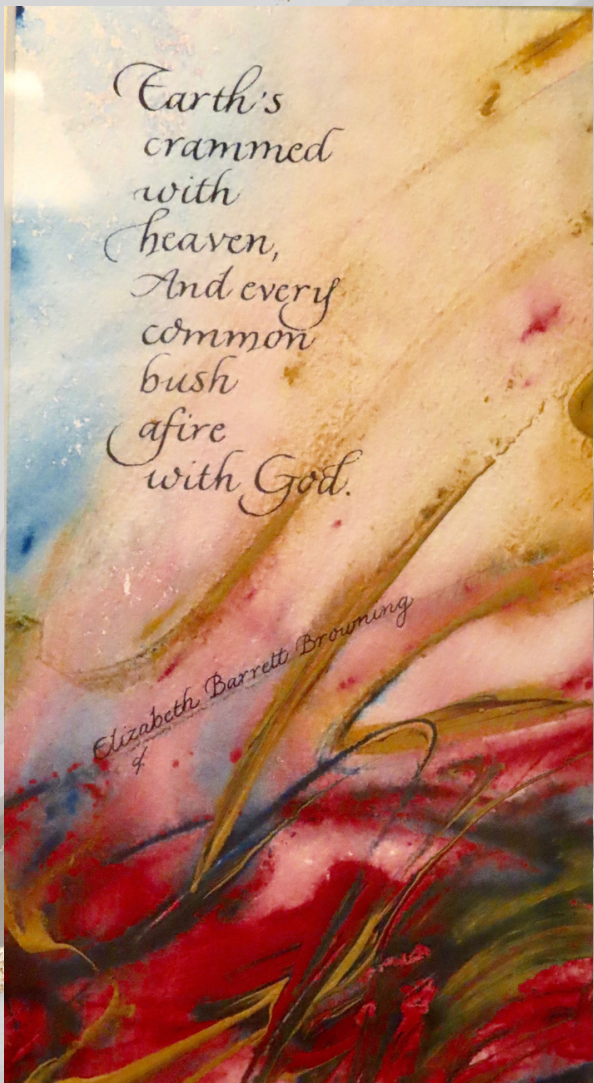 Earth's
crammed
with
heaven,
And every
common
bush
afire
with God.
Elizabeth Barrett Browning